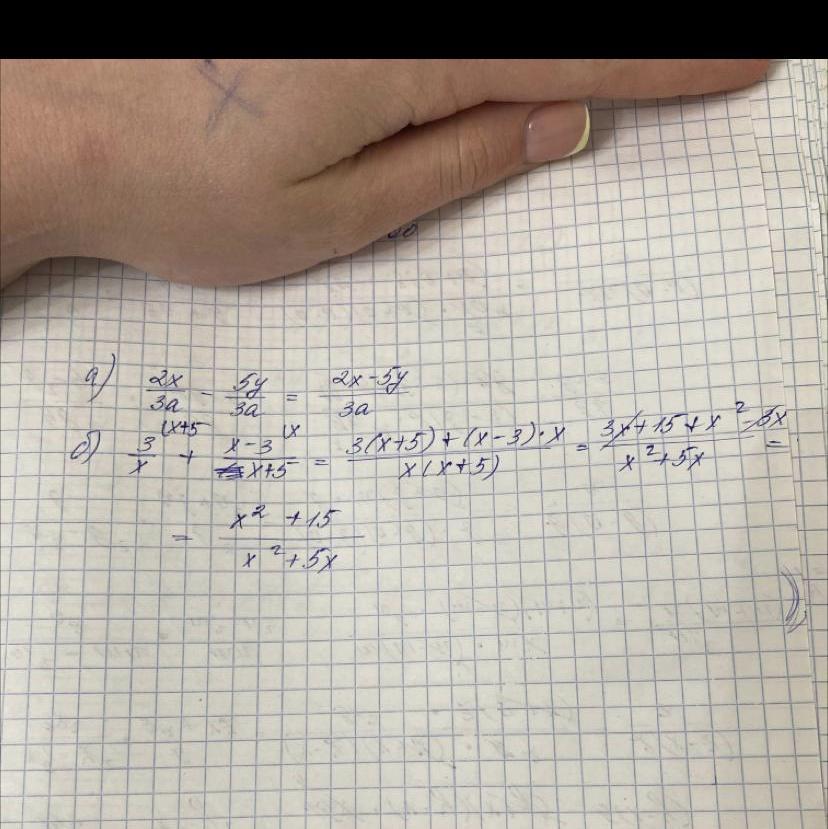 а) 2x/3a - 5y/3a = 2x-5y/3a
б) 3/x (x+5 + x-3/x+5 (x = 3(x+5)+(x-3)·x/x(x+5) = 3x+15+x²-3x/x²+5x =
= x²+15/x²+5x